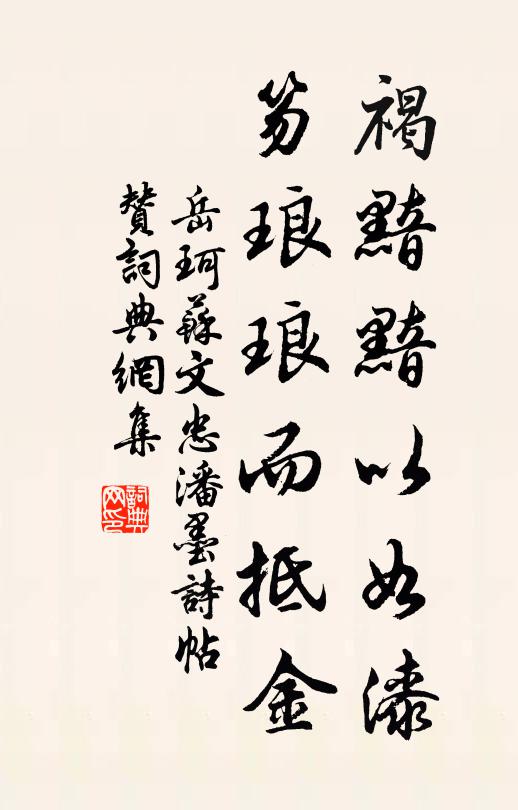 褐黯黯以如漆
笏琅琅而抵金
岳珂蘇文忠潘墨詩帖
贊詞典網集
詞典网印